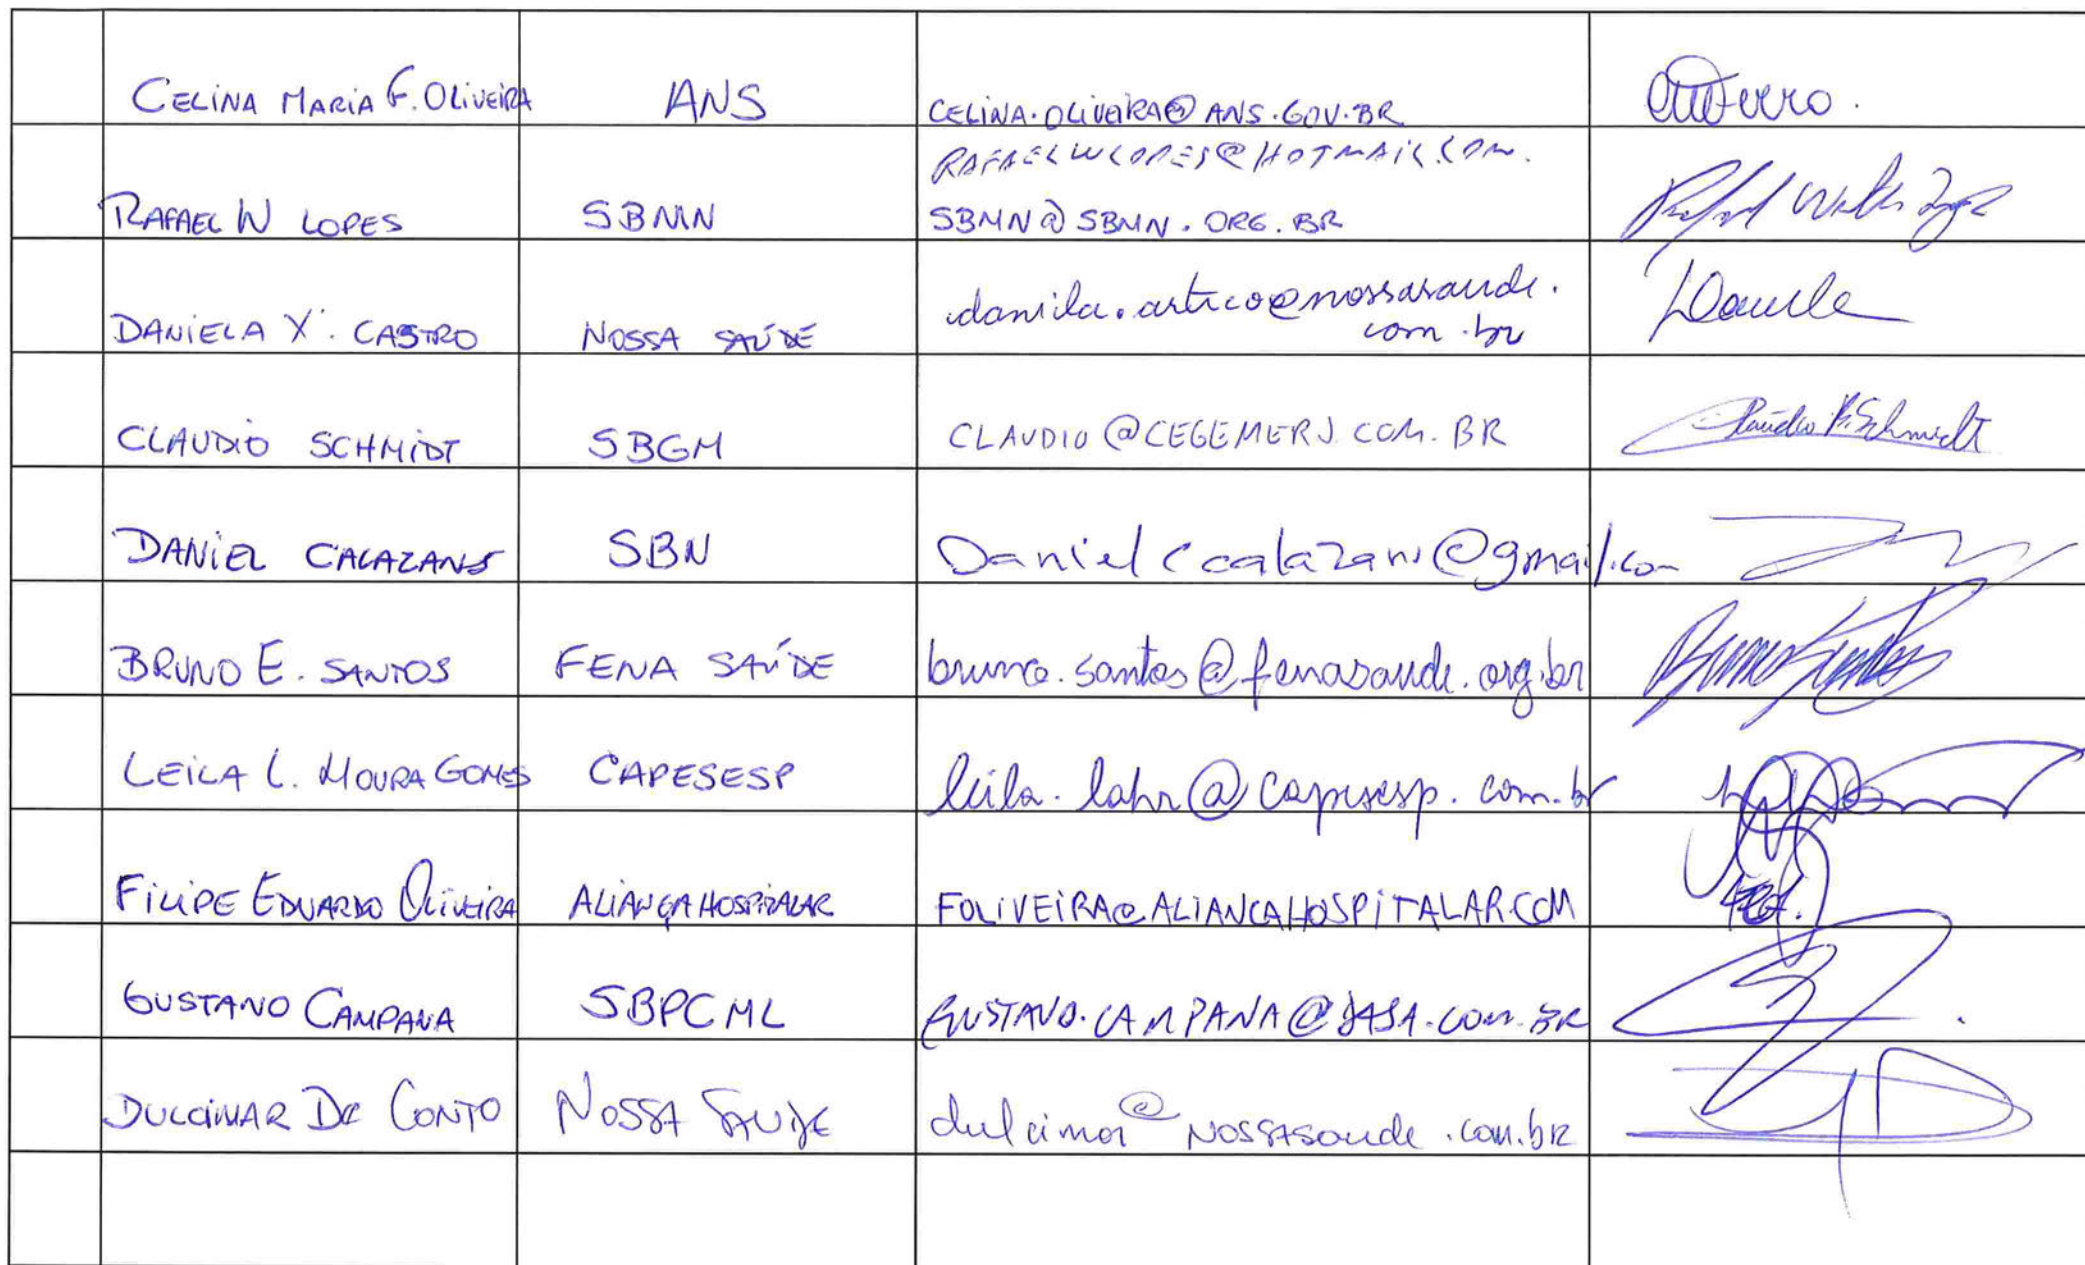 CELINA MARIA F. OLIVEIRA ANS CELINA.OLIVEIRA@ANS.GOV.BR
RAFAELWLOPES@HOTMAIL.COM.
RAFAEL W LOPES SBMN SBMN@SBMN.ORG.BR
DANIELA X. CASTRO NOSSA SAÚDE danila.artico@nossasaude.
com.br
CLAUDIO SCHMIDT SBGM CLAUDIO@CEGEMERJ.COM.BR Claudio P. Schmidt
DANIEL CALAZANS SBN Danielccalazans@gmail.com
BRUNO E. SANTOS FENA SAÚDE bruno.santos@fenasaude.org.br
LEILA L. MOURA GOMES CAPESESP leila.lahr@capesesp.com.br
FILIPE EDUARDO OLIVEIRA ALIANÇA HOSPITALAR FOLIVEIRA@ALIANCAHOSPITALAR.COM
GUSTAVO CAMPANA SBPCML GUSTAVO.CAMPANA@DASA.COM.BR
DULCIMAR DE CONTO NOSSA SAUDE dulcimar@NOSSASaude.com.br